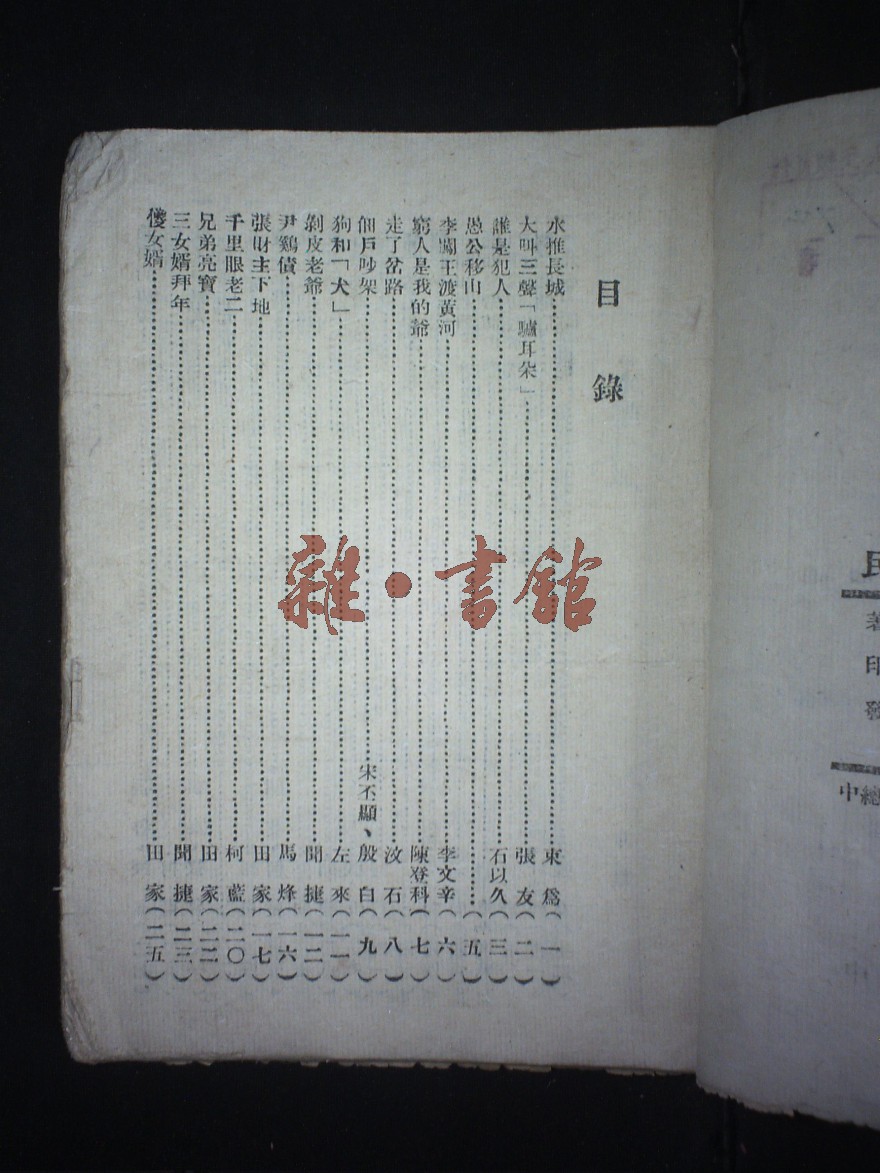 目錄
水推長城 東爲（一）
大叫三聲「驢耳朵」 張友（二）
誰是犯人 石以久（三）
愚公移山 （五）
李闖王渡黃河 李文辛（六）
窮人是我的爺 陳登科（七）
走了岔路 汶石（八）
佃戶吵架 宋不顯、殷白（九）
狗和「犬」 左來（一一）
剝皮老爺 聞捷（一二）
尹鷄債 馬烽（一六）
張財主下地 田家（一七）
千里眼老二 柯藍（二〇）
兄弟亮寶 田家（二二）
三女婿拜年 聞捷（二三）
傻女婿 田家（二五）
雜·書館
民
著
印
發
中總